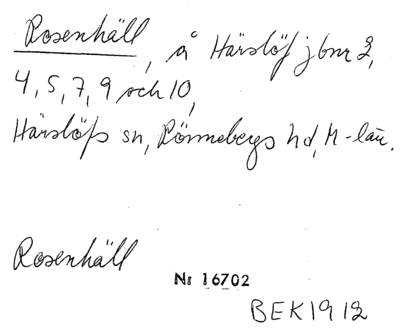 Rosenhäll, å Härslöf jbnr 2,
4, 5, 7, 9 och 10,
Härslöfs sn, Rönnebergs hd, M-län.
Rosenhäll
Nr 16702
BEK 1912